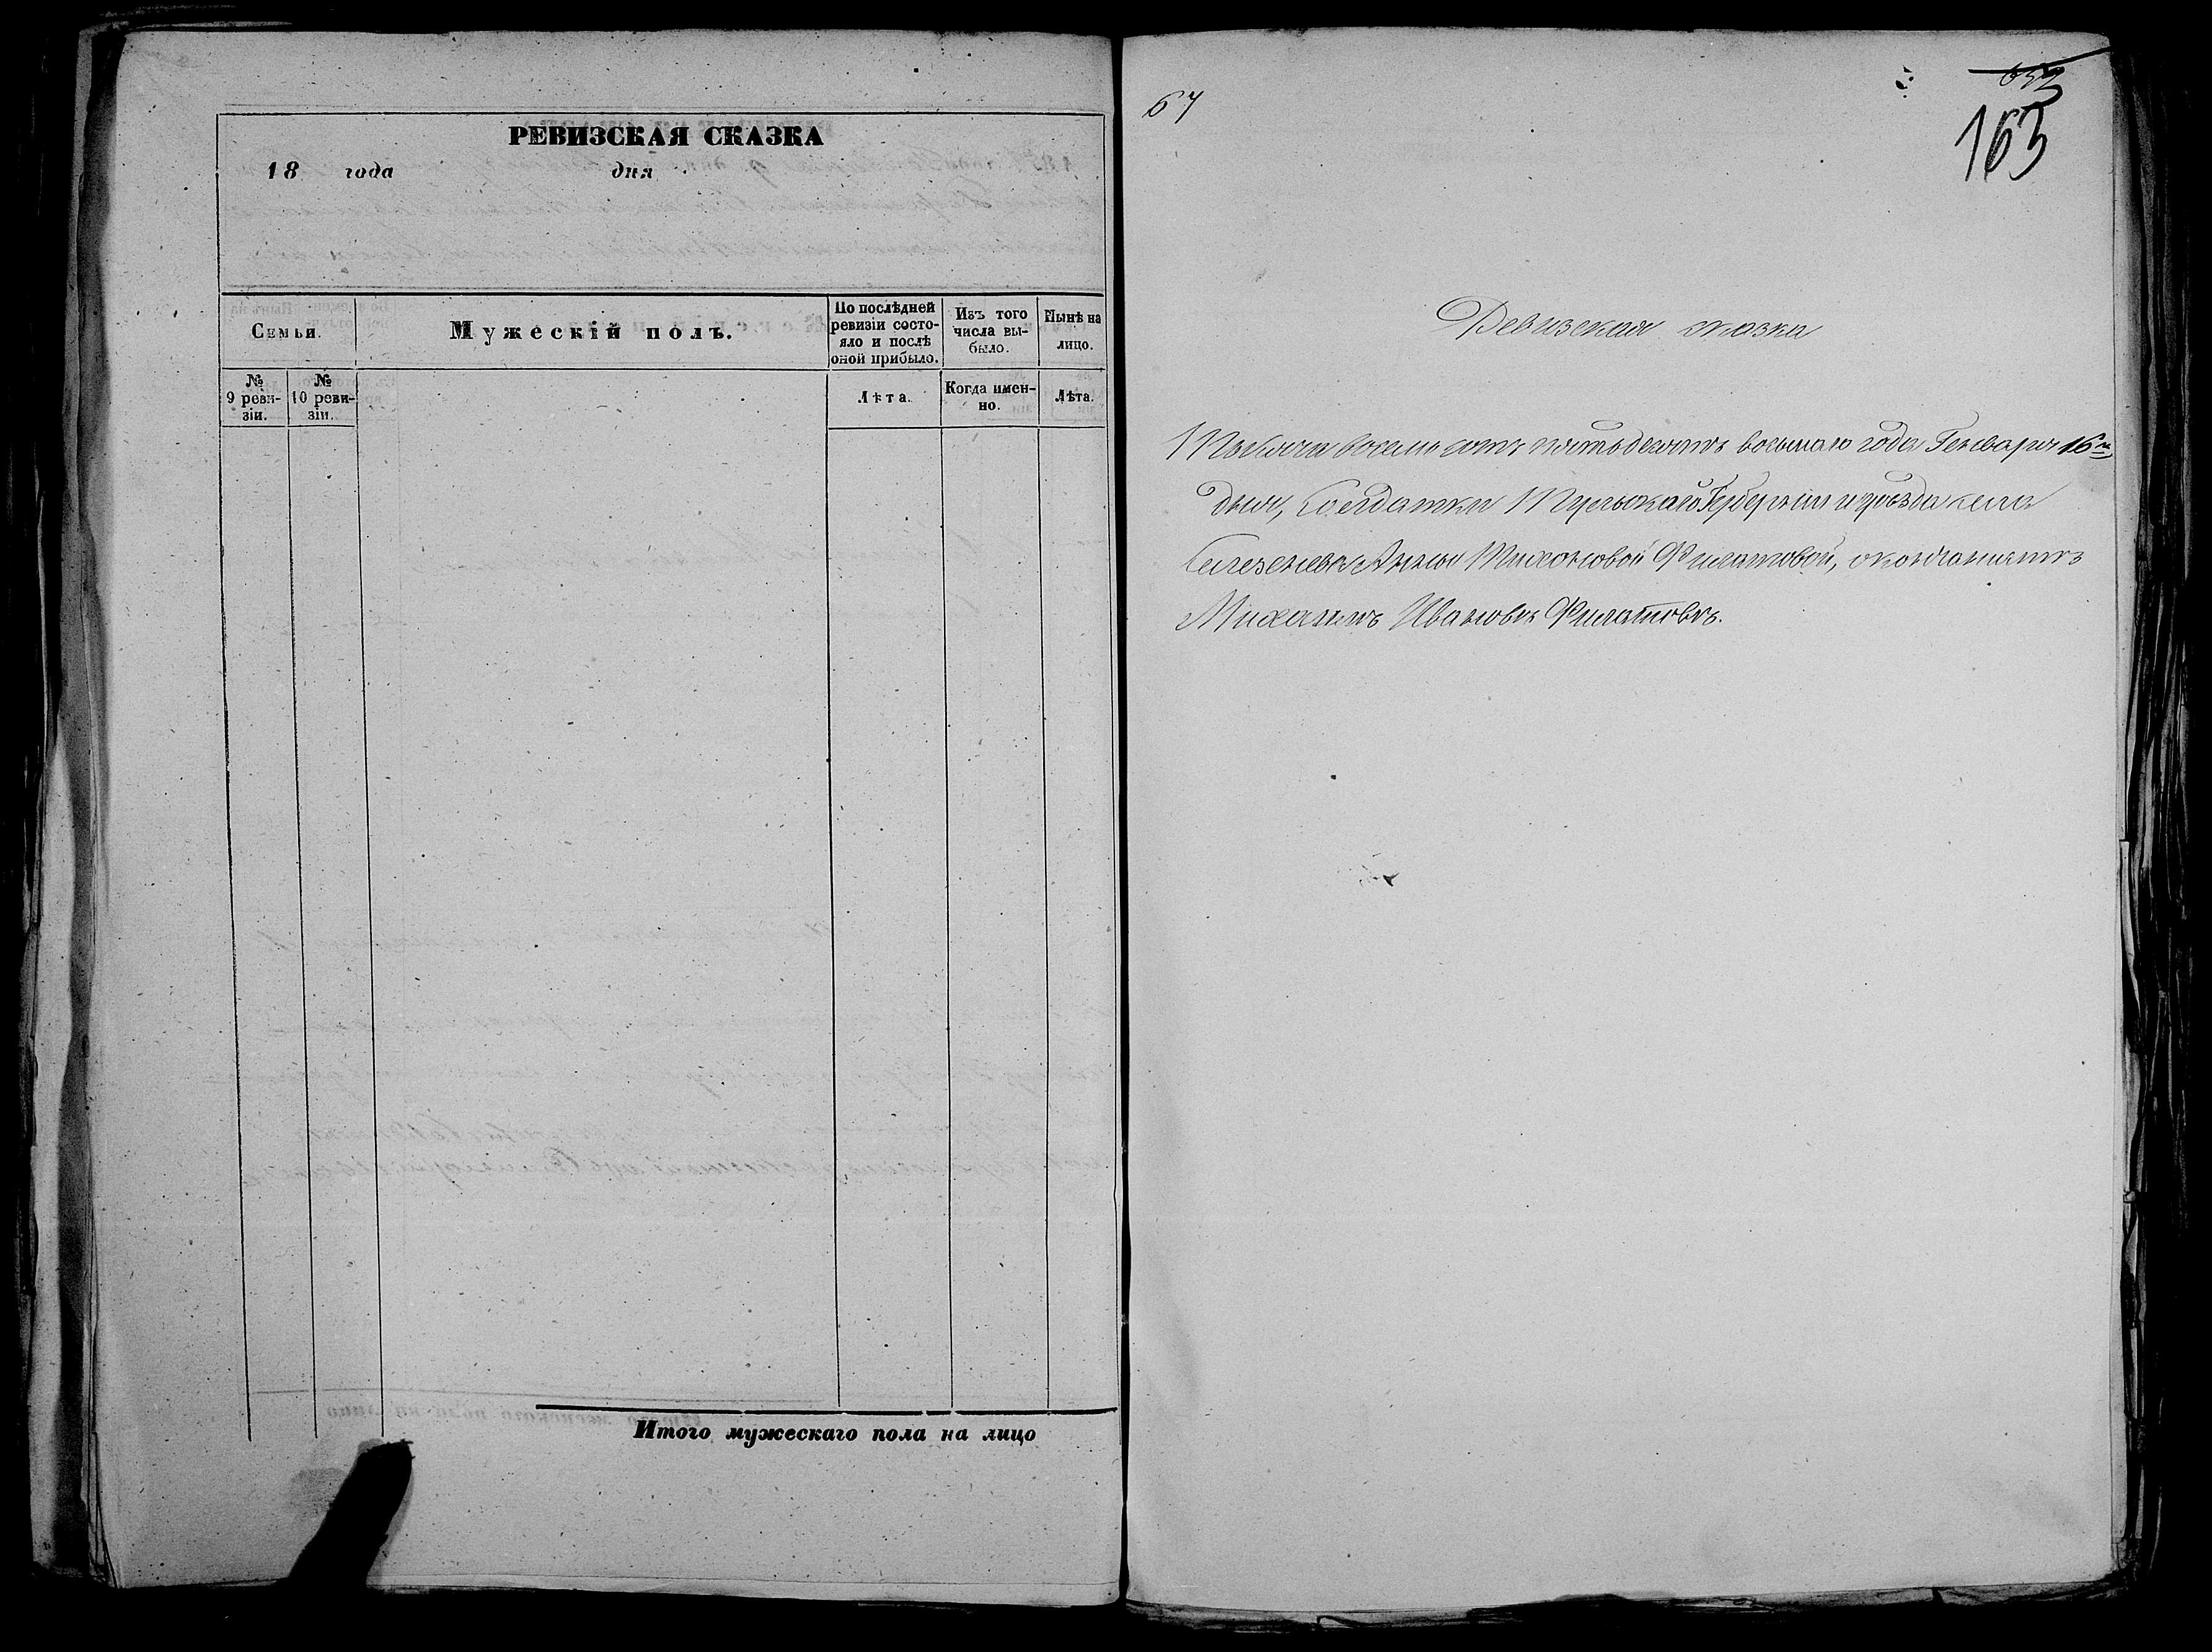 РЕВИЗСКАЯ СКАЗКА
18 года дня
Семьи.
Мужескій полъ.
По послѣдней ревизіи состояло и послѣ оной прибыло.
Изъ того числа выбыло.
Нынѣ на лицо.
№ 9 ревизіи.
№ 10 ревизіи.
Лѣта.
Когда именно.
Лѣта.
Итого мужескаго пола на лицо
67
163
Ревизская сказка
Тысяча восемь сотъ пятьдесятъ восьмаго года Генваря 16го
дня, Солдатки Тульской Губерніи и уѣзда села
Анны Тихоновой Филатовой,
Михаилъ Ивановъ Филатовъ.